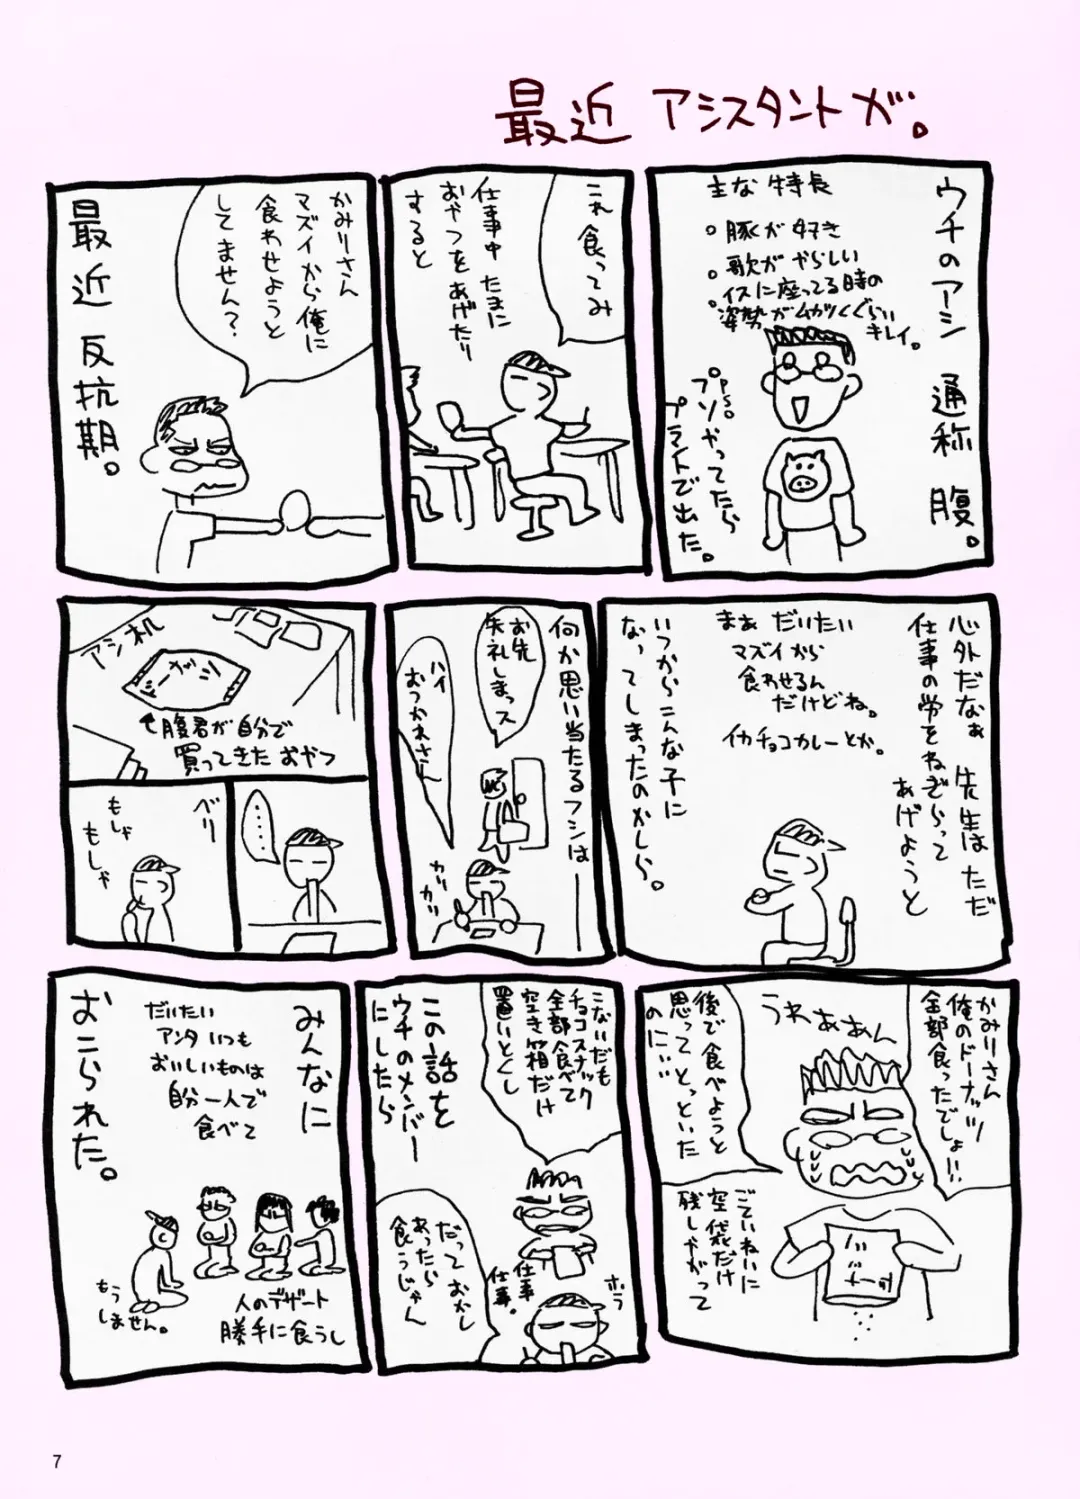 最近アシスタントが。
ウチのアシ 通称 腹。
主な特長
豚が好き
歌がやらしい
イスに座ってる時の
姿勢がムカツくぐらい
キレイ。
PSO
プソやってたら
プライトで出た。
これ食ってみ
仕事中 たまに
おやつをあげたり
すると
かみりさん
マズイから俺に
食わせようと
してません?
最近 反抗期。
心外だなぁ 先生は ただ
仕事の労をねぎらって
あげようと
まぁ だいたい
マズイから
食わせるん
だけどね。
イカチョコカレーとか。
いつからこんな子に
なってしまったのかしら。
何か思い当たるフシは――
お先
失礼しまっス
ハイ
おつかれさん
カリ
カリ
アシ机
↑腹君が自分で
買ってきたおやつ
‥‥
ベリ
もしゃ
もしゃ
かみりさん
俺のドーナッツ
全部食ったでしょ!!
うわぁぁん
後で食べようと
思ってとっといた
のに‥
ごていねいに
空袋だけ
残しやがって
こないだも
チョコスナック
全部食べて
空き箱だけ
置いとくし
この話を
ウチのメンバー
にしたら
仕事
仕事。
ホラ
だって おかし
あったら
食うじゃん
みんなに
だいたい
アンタ いつも
おいしいものは
自分一人で
食べて
おこられた。
人のデザート
勝手に食うし
もう
しません。
7